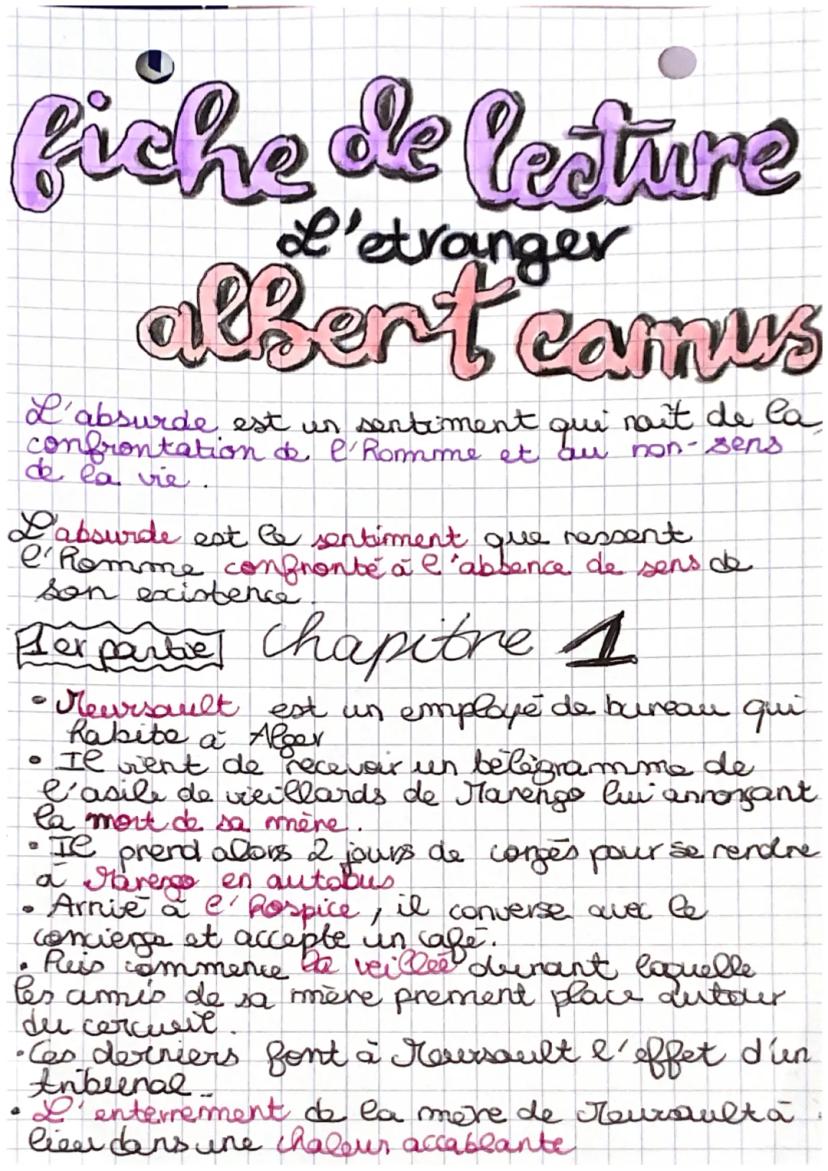 fiche de lecture
L'etranger
albert camus
L'absurde est un sentiment qui naît de la
confrontation de l'homme et du non-sens
de la vie.
L'absurde est le sentiment que ressent
l'homme confronté à l'absence de sens de
son existence.
1er partie chapitre 1
• Meursault est un employé de bureau qui
habite à Alger
• Il vient de recevoir un télégramme de
l'asile de vieillards de Marengo lui annonçant
la mort de sa mère.
• Il prend alors 2 jours de congés pour se rendre
à Marengo en autobus
• Arrivé à l'hospice, il converse avec le
concierge et accepte un café.
• Puis commence la veilleé durant laquelle
les amis de sa mère prement place autour
du cercueil.
• Ces derniers font à Meursault l'effet d'un
tribunal.
• L'enterrement de la mère de Meursault à
lieu dans une chaleur accablante